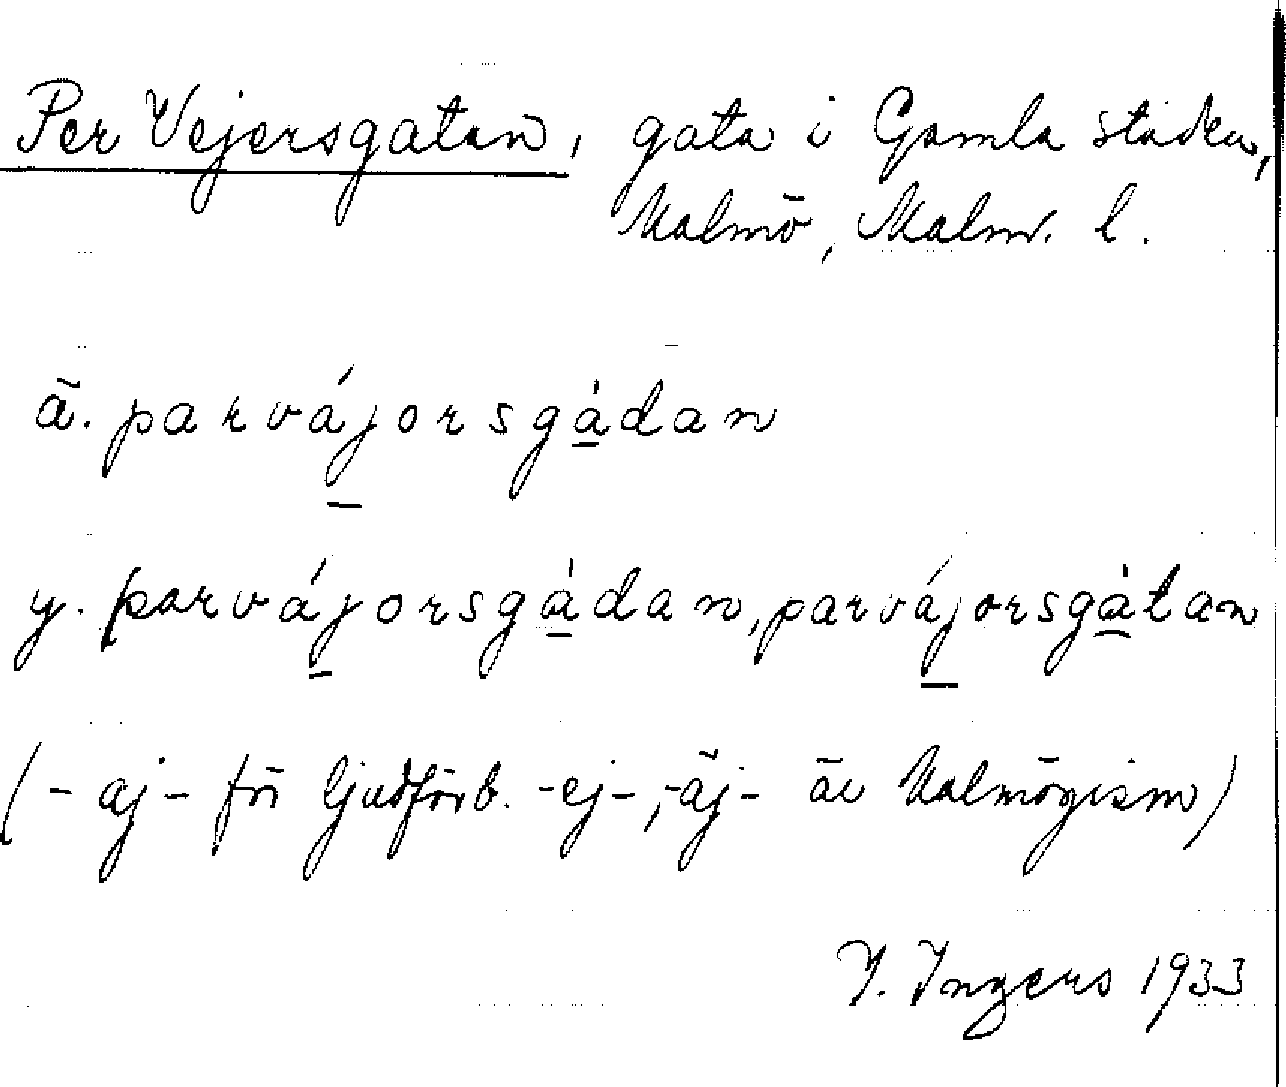 Per Vejersgatan, gata i Gamla staden,
Malmö, Malm. l.
ä. parvájorsgàdan
y. parvájorsgàdan, parvájorsgàtan
(-aj- för ljudförb. -ej-, -äj- är Malmögism)
I. Ingers 1933